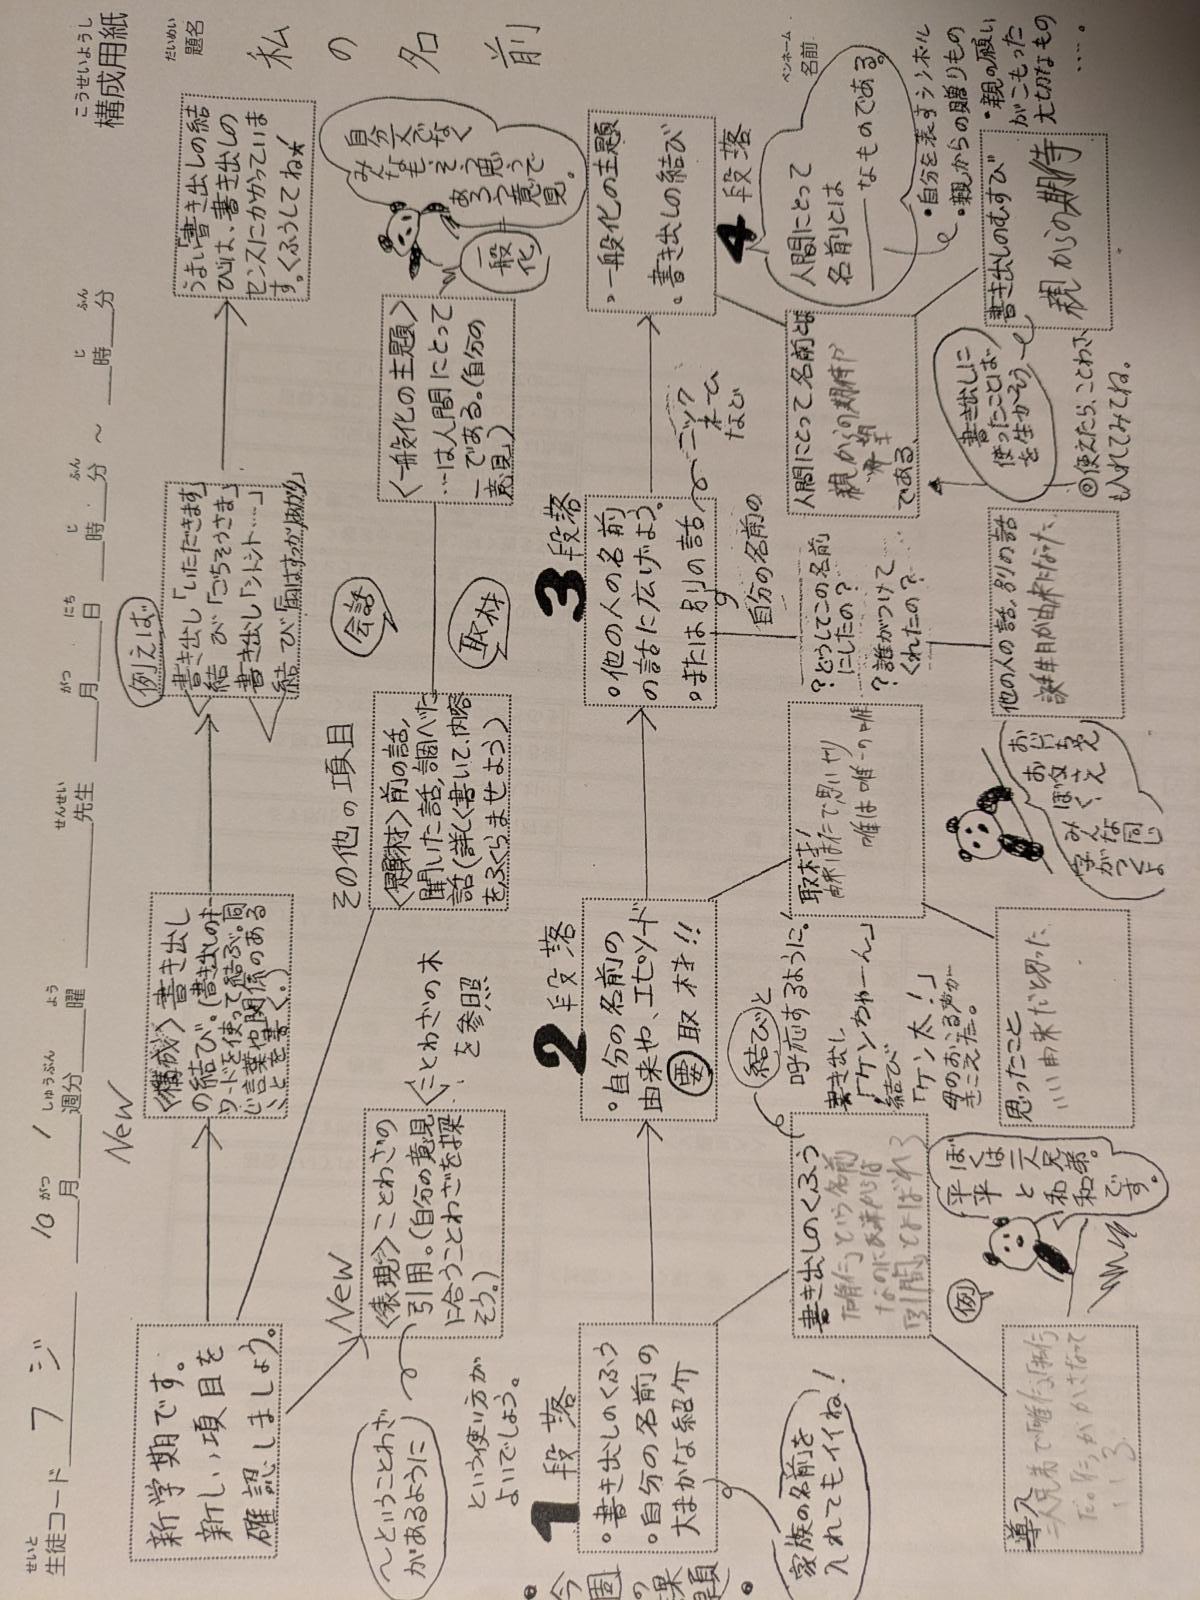 こうせいようし
構成用紙
だいめい
題名
私の名前
ペンネーム
名前
せいと
生徒コード フジ
10月 1週分 曜
がつ しゅうぶん よう
せんせい
先生
がつ にち じ ふん じ ふん
月 日 時 分 ～ 時 分
新学期です。
新しい項目を
確認しましょう。
New
〈構成〉書き出し
の結び。(書き出しの中
ワードを使って結ぶ。同
じ言葉や関係のある
ことを書く。)
例えば
書き出し「いただきます」
結び「ごちそうさま」
書き出し「シトシト……」
結び
うまい「書き出しの結
び」は、書き出しの
センスにかかっていま
す。くふうしてね★
New
〈表現〉ことわざの
引用。(自分の意見
に合うことわざを探
そう。)
～ということわざ
があるように
という使い方が
よいでしょう。
〈ことわざの木
を参照
その他の項目
〈題材〉前の話、
聞いた話、調べた
話(詳しく書いて、内容
をふくらませよう)
会話
取材
〈一般化の主題〉
…は人間にとって
―である。(自分の
意見)
一般化
自分だけでなく
みんなもそう思うで
あろう意見。
今週の課題
1段落
・書き出しのくふう
・自分の名前の
大まかな紹介
家族の名前を
入れてもイイね!
2段落
・自分の名前の
由来や、エピソード
要取材!!
3段落
・他の人の名前
の話に広げよう。
・または別の話
ニックネームなど
4段落
・一般化の主題
・書き出しの結び
人間にとって
名前とは
___なものである。
・自分を表すシンボル
・親からの贈りもの
・親の願い
がこもった
大切なもの
……。
書き出しのくふう
「唯仁」という名前
なのに
とよばれる
結びと
呼応するように!
書き出し
「ケンちゃーん」
結び
「ケン太!」
母のおこる声が
きこえた。
導入
二人兄弟で
例
ぼくは三人兄弟。
平平と和和
です。
取材!
思いやり
唯は唯一の唯
思ったこと
いい由来だと思った。
おじいちゃん
お父さん
ぼく、
みんな同じ
字がつくよ
自分の名前の
?どうしてこの名前
にしたの?
?誰がつけて
くれたの?
他の人の話、別の話
誕生日が由来だった。
人間にとって名前とは
親からの期待
である。
書き出しのむすび
親からの期待
書き出しに
使ったことば
を生かそう
◎使えたら、ことわざ
も入れてみてね。